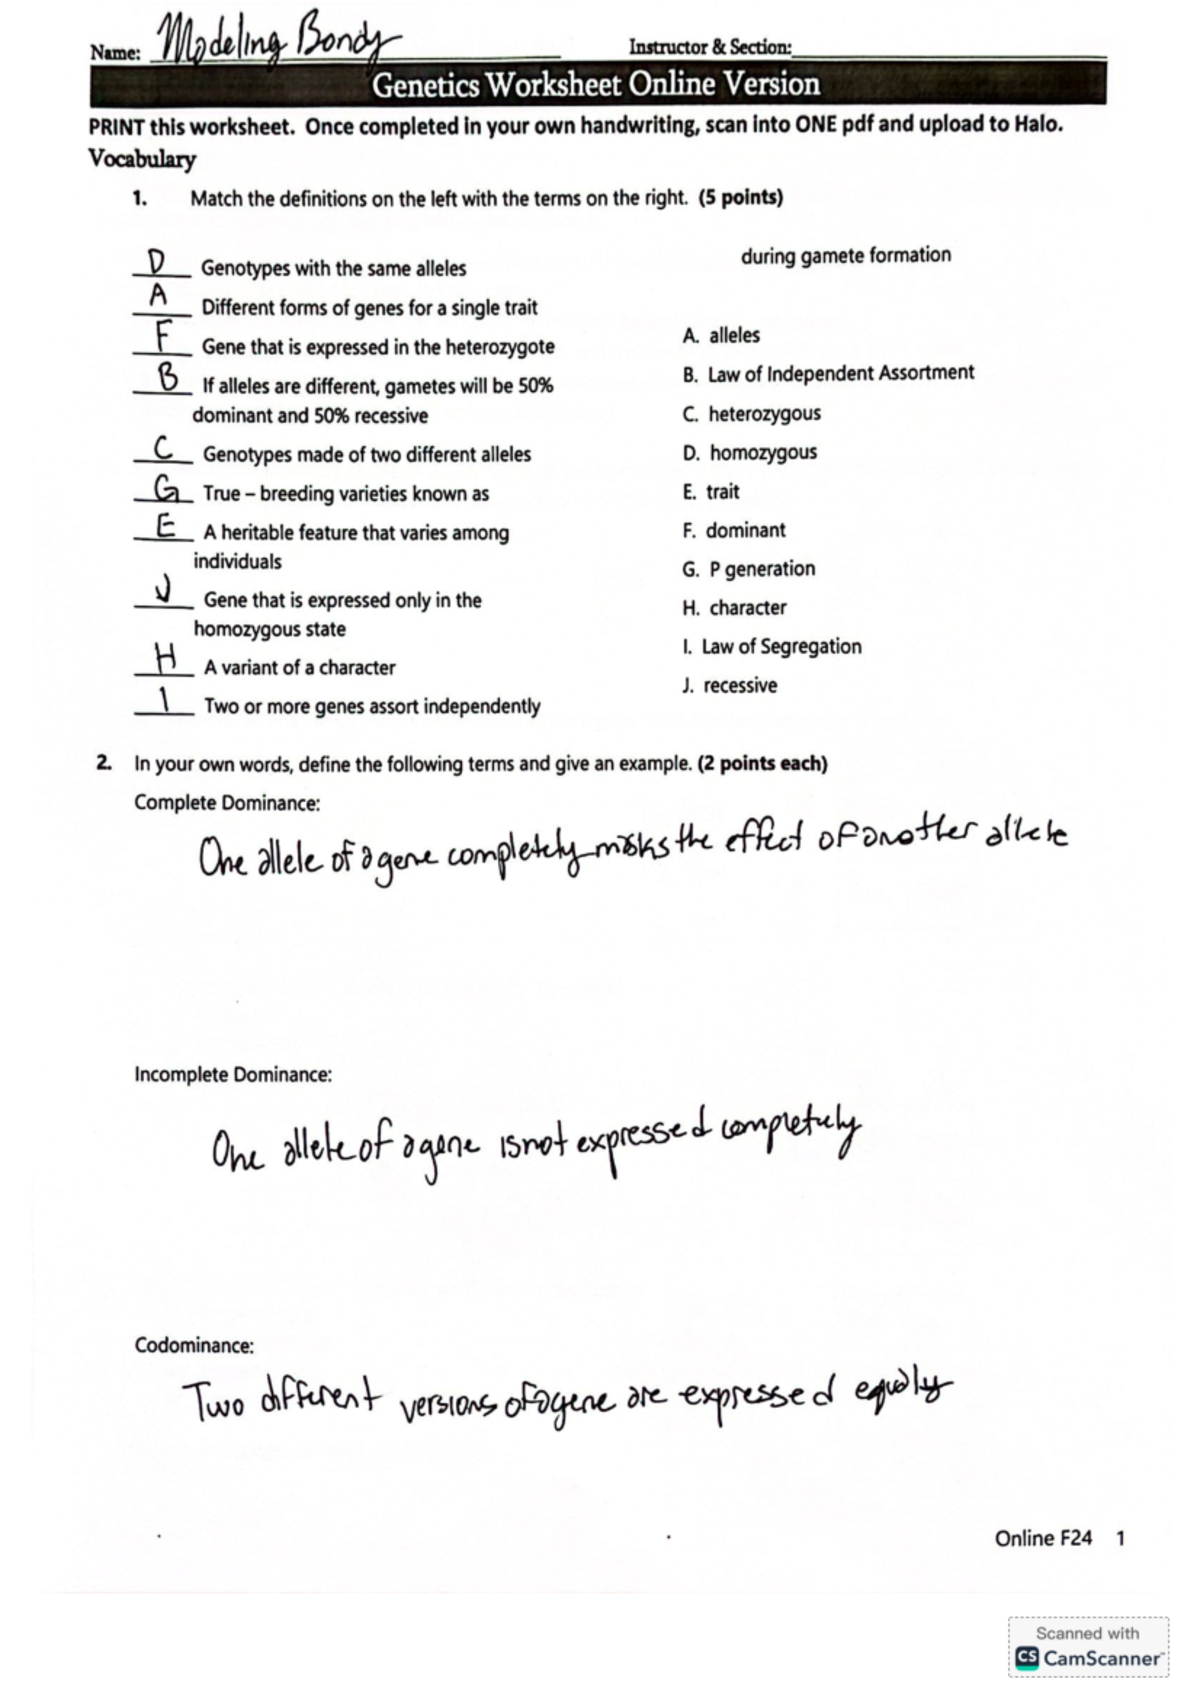 Name: Modeling Bondy Instructor & Section:
Genetics Worksheet Online Version
PRINT this worksheet. Once completed in your own handwriting, scan into ONE pdf and upload to Halo.
Vocabulary
1. Match the definitions on the left with the terms on the right. (5 points)
during gamete formation
D Genotypes with the same alleles
A Different forms of genes for a single trait
F Gene that is expressed in the heterozygote
B If alleles are different, gametes will be 50%
dominant and 50% recessive
C Genotypes made of two different alleles
G True – breeding varieties known as
E A heritable feature that varies among
individuals
J Gene that is expressed only in the
homozygous state
H A variant of a character
I Two or more genes assort independently
A. alleles
B. Law of Independent Assortment
C. heterozygous
D. homozygous
E. trait
F. dominant
G. P generation
H. character
I. Law of Segregation
J. recessive
2. In your own words, define the following terms and give an example. (2 points each)
Complete Dominance:
One allele of a gene completely masks the effect of another allele
Incomplete Dominance:
One allele of a gene is not expressed completely
Codominance:
Two different versions of a gene are expressed equally
Online F24 1
Scanned with
CS CamScanner